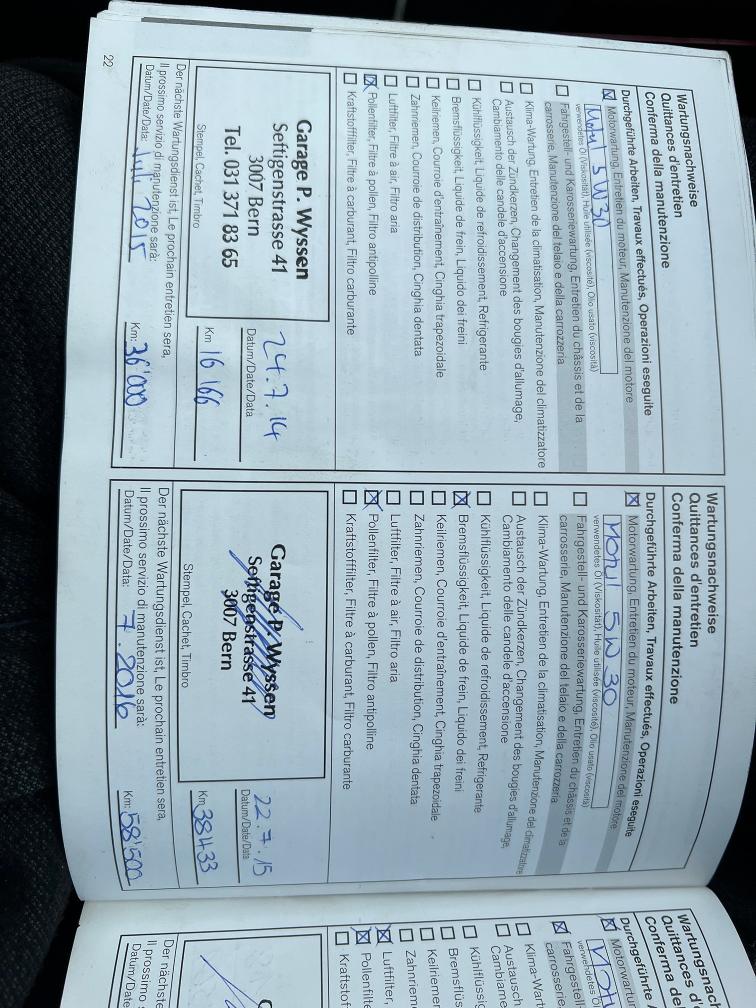 Wartungsnachweise
Quittances d'entretien
Conferma della manutenzione
Durchgeführte Arbeiten, Travaux effectués, Operazioni eseguite
Motorwartung, Entretien du moteur, Manutenzione del motore
Motul 5W30
verwendetes Öl (Viskosität), Huile utilisée (viscosité), Olio usato (viscosità)
Fahrgestell- und Karosseriewartung, Entretien du châssis et de la
carrosserie, Manutenzione del telaio e della carrozzeria
Klima-Wartung, Entretien de la climatisation, Manutenzione del climatizzatore
Austausch der Zündkerzen, Changement des bougies d'allumage,
Cambiamento delle candele d'accensione
Kühlflüssigkeit, Liquide de refroidissement, Refrigerante
Bremsflüssigkeit, Liquide de frein, Liquido dei freini
Keilriemen, Courroie d'entraînement, Cinghia trapezoidale
Zahnriemen, Courroie de distribution, Cinghia dentata
Luftfilter, Filtre à air, Filtro aria
Pollenfilter, Filtre à pollen, Filtro antipolline
Kraftstofffilter, Filtre à carburant, Filtro carburante
Garage P. Wyssen
Seftigenstrasse 41
3007 Bern
Tel. 031 371 83 65
Stempel, Cachet, Timbro
24.7.14
Datum/Date/Data
Km 16166
Der nächste Wartungsdienst ist, Le prochain entretien sera,
Il prossimo servizio di manutenzione sarà:
Datum/Date/Data: Juli 2015
Km: 36'000
22
Wartungsnachweise
Quittances d'entretien
Conferma della manutenzione
Durchgeführte Arbeiten, Travaux effectués, Operazioni eseguite
Motorwartung, Entretien du moteur, Manutenzione del motore
Motul 5W30
verwendetes Öl (Viskosität), Huile utilisée (viscosité), Olio usato (viscosità)
Fahrgestell- und Karosseriewartung, Entretien du châssis et de la
carrosserie, Manutenzione del telaio e della carrozzeria
Klima-Wartung, Entretien de la climatisation, Manutenzione del climatizzatore
Austausch der Zündkerzen, Changement des bougies d'allumage,
Cambiamento delle candele d'accensione
Kühlflüssigkeit, Liquide de refroidissement, Refrigerante
Bremsflüssigkeit, Liquide de frein, Liquido dei freini
Keilriemen, Courroie d'entraînement, Cinghia trapezoidale
Zahnriemen, Courroie de distribution, Cinghia dentata
Luftfilter, Filtre à air, Filtro aria
Pollenfilter, Filtre à pollen, Filtro antipolline
Kraftstofffilter, Filtre à carburant, Filtro carburante
Garage P. Wyssen
Seftigenstrasse 41
3007 Bern
Stempel, Cachet, Timbro
22.7.15
Datum/Date/Data
Km 38433
Der nächste Wartungsdienst ist, Le prochain entretien sera,
Il prossimo servizio di manutenzione sarà:
Datum/Date/Data: 7.2016
Km: 58'500
Wartungsnach
Quittances d'
Conferma de
Durchgeführt
Motorwartu
Motu
verwendetes
Fahrgestel
carrosserie
Klima-War
Austausch
Cambiam
Kühlflüssig
Bremsflüs
Keilriemen
Zahnriem
Luftfilter,
Pollenfilt
Kraftstof
Der nächst
Il prossimo
Datum/Dat